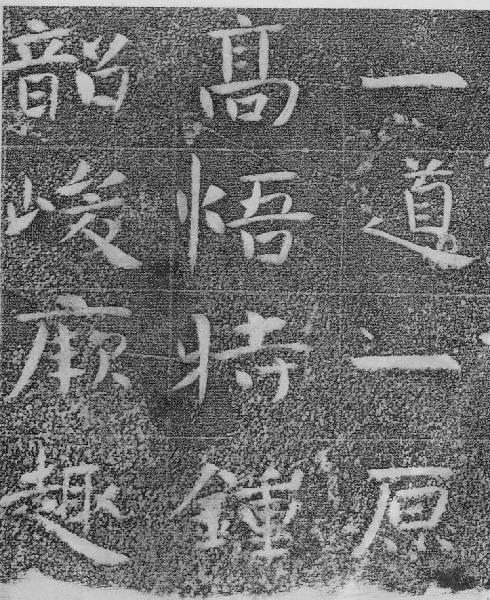 一道一原
高悟特鍾
韶峻厥趣